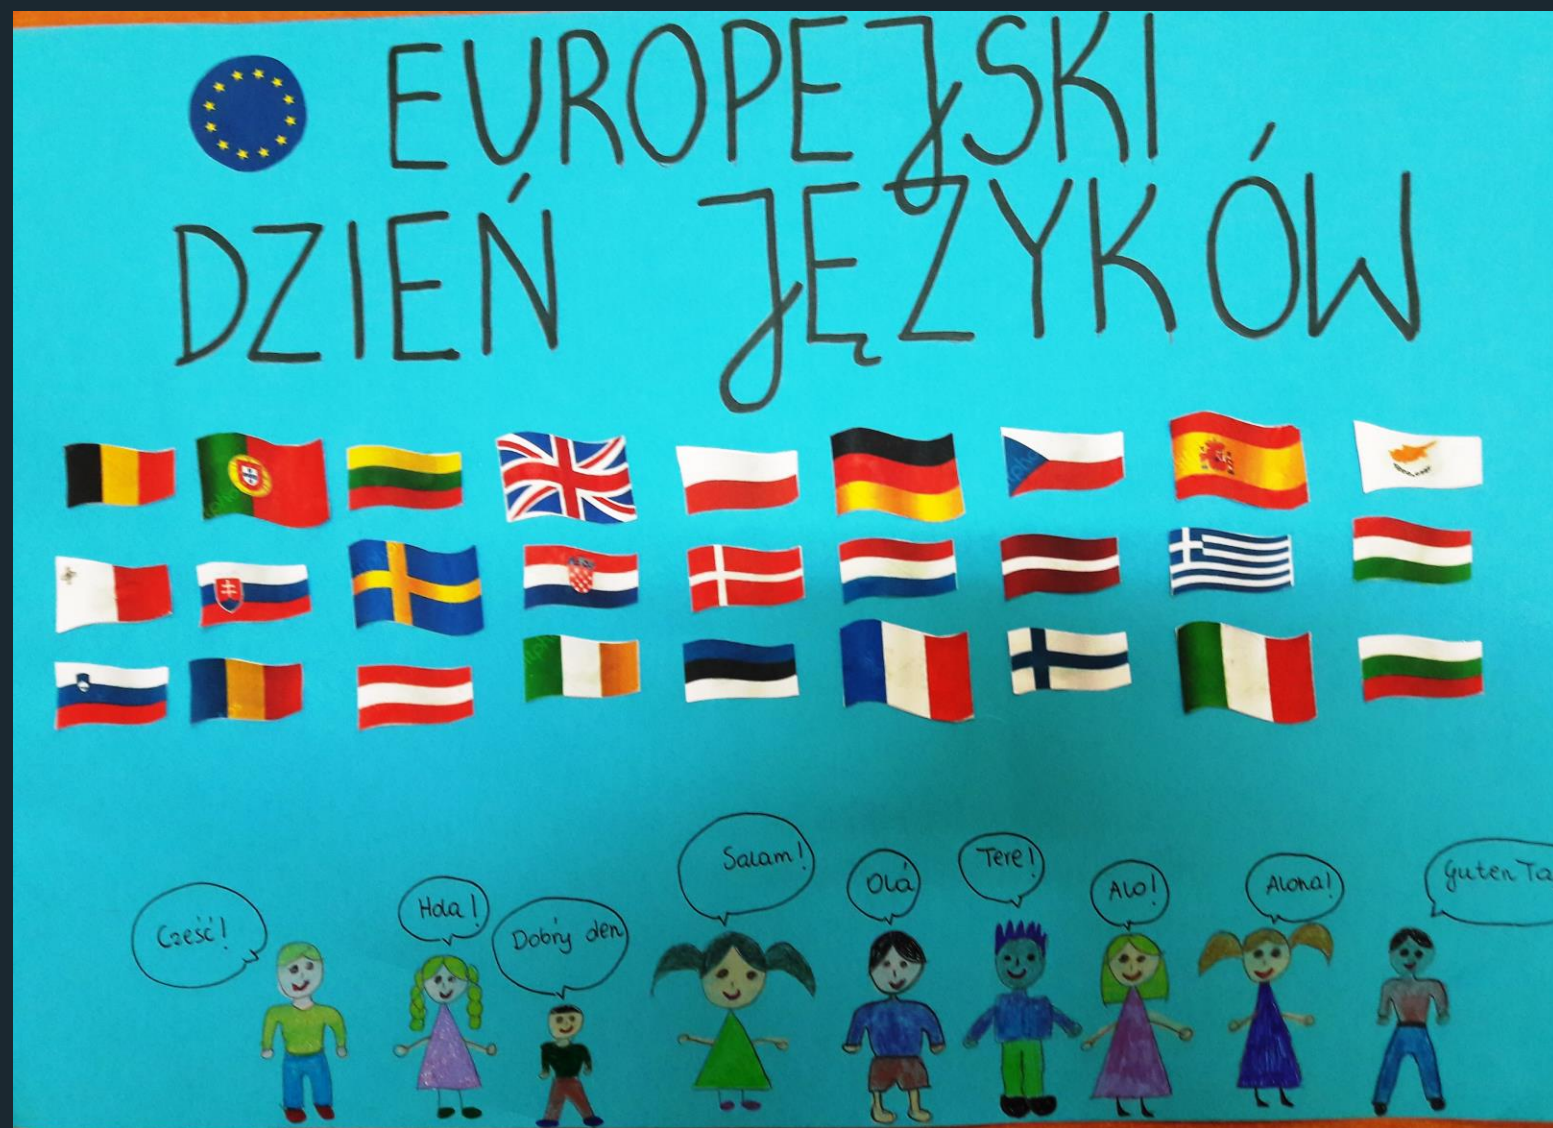 EUROPEJSKI
DZIEŃ JĘZYKÓW
Cześć!
Hola!
Dobrý den
Salam!
Olá
Tere!
Alo!
Aloha!
Guten Ta